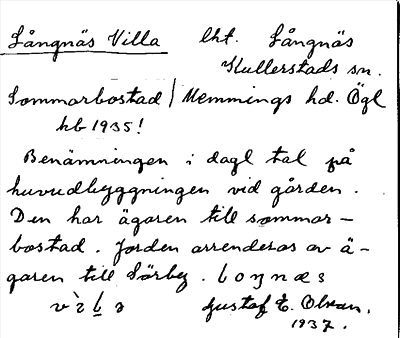 Långnäs Villa lht. Långnäs
Kullerstads sn.
Sommarbostad / Memmings hd. Ögl
hb 1935!
Benämningen i dagl tal på
huvudbyggningen vid gården.
Den har ägaren till sommar-
bostad. Jorden arrenderas av ä-
garen till Sörby. loŋnæs
Gustaf E. Olsson.
1937.